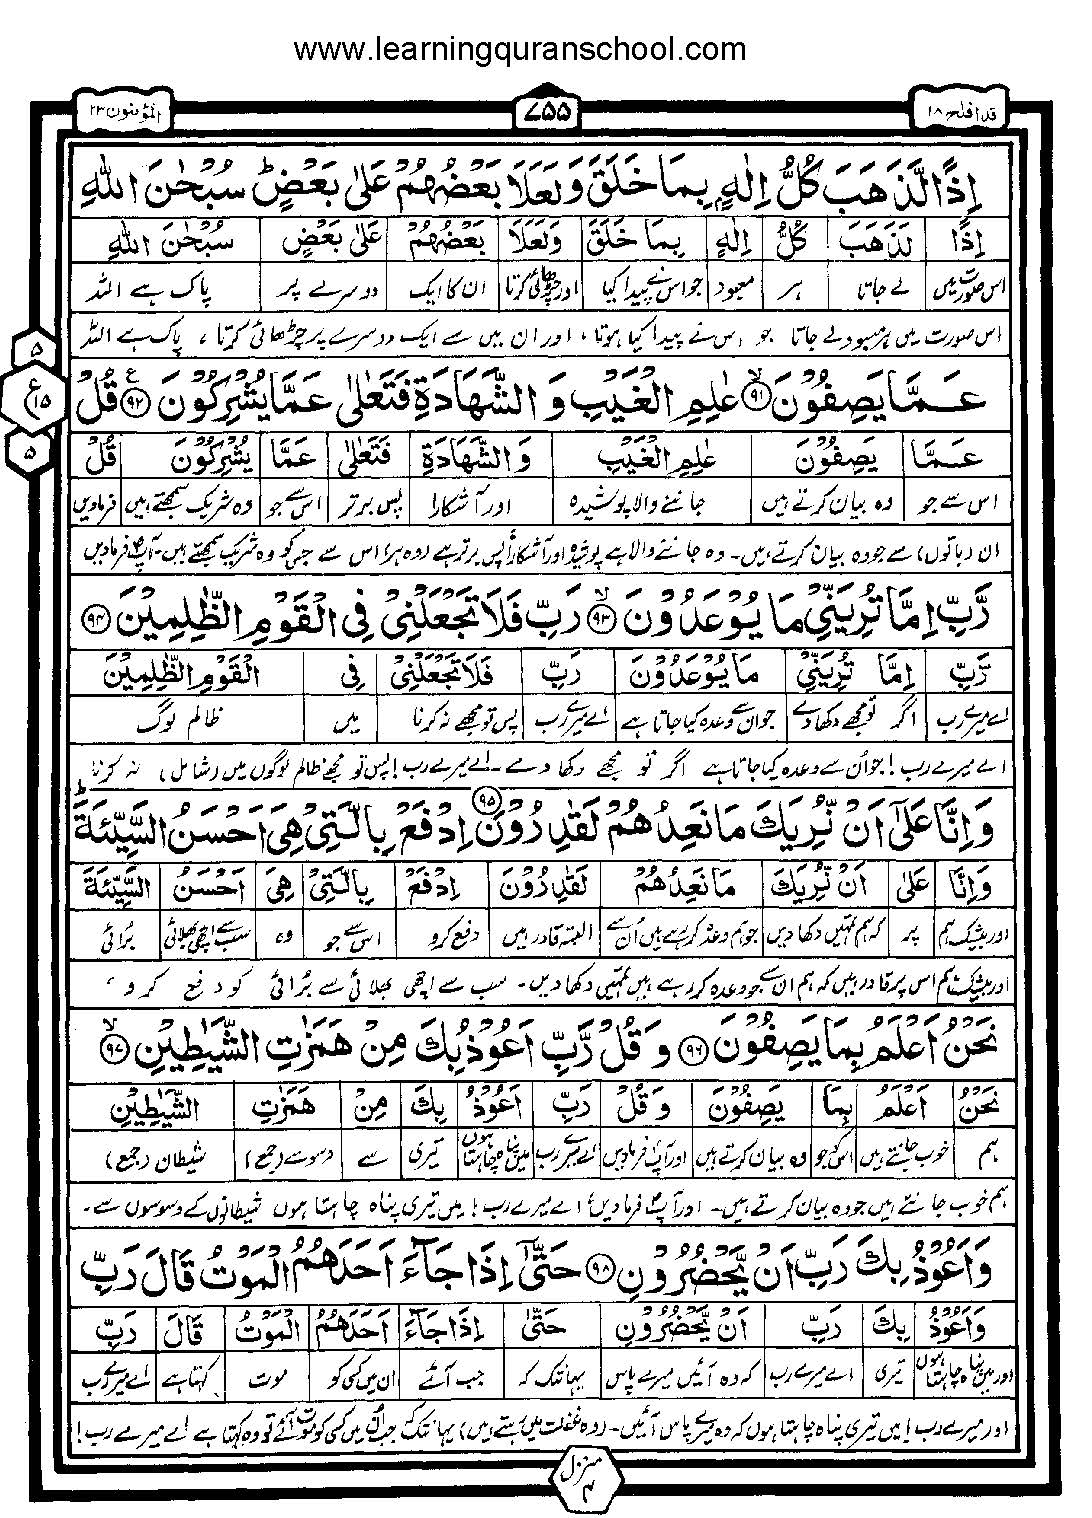 www.learningquranschool.com
قد افلح ۱۸
۷۵۵
المؤمنون ۲۳
اِذًا لَّذَهَبَ كُلُّ اِلٰهٍۭ بِمَا خَلَقَ وَ لَعَلَا بَعْضُهُمْ عَلٰى بَعْضٍ ؕ سُبْحٰنَ اللّٰهِ
اِذًا لَّذَهَبَ كُلُّ اِلٰهٍ بِمَا خَلَقَ وَلَعَلَا بَعْضُهُمْ عَلٰى بَعْضٍ سُبْحٰنَ اللّٰهِ
اس صورت میں لے جاتا ہر معبود جو اس نے پیدا کیا اور چڑھائی کرتا ان کا ایک دوسرے پر پاک ہے اللہ
اس صورت میں ہر معبود لے جاتا جو اس نے پیدا کیا ہوتا، اور ان میں سے ایک دوسرے پر چڑھائی کرتا، پاک ہے اللہ
۵
ع ۱۵
۵
عَمَّا يَصِفُوْنَ ۙ﴿۹۱﴾ عٰلِمِ الْغَيْبِ وَ الشَّهَادَةِ فَتَعٰلٰى عَمَّا يُشْرِكُوْنَ ﴿۹۲﴾ ع قُلْ
عَمَّا يَصِفُوْنَ عٰلِمِ الْغَيْبِ وَ الشَّهَادَةِ فَتَعٰلٰى عَمَّا يُشْرِكُوْنَ قُلْ
اس سے جو وہ بیان کرتے ہیں جاننے والا پوشیدہ اور آشکارا پس برتر اس سے جو وہ شریک سمجھتے ہیں فرمادیں
ان (باتوں) سے جو وہ بیان کرتے ہیں۔ وہ جاننے والا ہے پوشیدہ اور آشکارا، پس برتر ہے (وہ ہر) اس سے جس کو وہ شریک سمجھتے ہیں۔ آپؐ فرمادیں
رَّبِّ اِمَّا تُرِيَنِّيْ مَا يُوْعَدُوْنَ ۙ﴿۹۳﴾ رَبِّ فَلَا تَجْعَلْنِيْ فِي الْقَوْمِ الظّٰلِمِيْنَ ﴿۹۴﴾
رَّبِّ اِمَّا تُرِيَنِّيْ مَا يُوْعَدُوْنَ رَبِّ فَلَا تَجْعَلْنِيْ فِي الْقَوْمِ الظّٰلِمِيْنَ
اے میرے رب اگر تو مجھے دکھادے جو ان سے وعدہ کیا جاتا ہے اے میرے رب پس تو مجھے نہ کرنا میں ظالم لوگ
اے میرے رب! جو اُن سے وعدہ کیا جاتا ہے اگر تو مجھے دکھادے۔ اے میرے رب! پس تو مجھے ظالم لوگوں میں (شامل) نہ کرنا
وَ اِنَّا عَلٰٓى اَنْ نُّرِيَكَ مَا نَعِدُهُمْ لَقٰدِرُوْنَ ﴿۹۵﴾ اِدْفَعْ بِالَّتِيْ هِيَ اَحْسَنُ السَّيِّئَةَ ؕ
وَ اِنَّا عَلٰٓى اَنْ نُّرِيَكَ مَا نَعِدُهُمْ لَقٰدِرُوْنَ اِدْفَعْ بِالَّتِيْ هِيَ اَحْسَنُ السَّيِّئَةَ
اور بیشک ہم پر کہ ہم تمہیں دکھادیں جو ہم وعدہ کررہے ہیں اُن سے البتہ قادر ہیں دفع کرو اس سے جو وہ سب سے اچھی بھلائی بُرائی
اور بیشک ہم اس پر قادر ہیں کہ ہم ان سے جو وعدہ کررہے ہیں تمہیں دکھادیں۔ سب سے اچھی بھلائی سے بُرائی کو دفع کرو،
نَحْنُ اَعْلَمُ بِمَا يَصِفُوْنَ ﴿۹۶﴾ وَ قُلْ رَّبِّ اَعُوْذُ بِكَ مِنْ هَمَزٰتِ الشَّيٰطِيْنِ ۙ﴿۹۷﴾
نَحْنُ اَعْلَمُ بِمَا يَصِفُوْنَ وَ قُلْ رَّبِّ اَعُوْذُ بِكَ مِنْ هَمَزٰتِ الشَّيٰطِيْنِ
ہم خوب جانتے ہیں اس کو جو وہ بیان کرتے ہیں اور آپؐ فرمادیں اے میرے رب میں پناہ چاہتا ہوں تیری سے وسوسے (جمع) شیطان (جمع)
ہم خوب جانتے ہیں جو وہ بیان کرتے ہیں۔ اور آپؐ فرمادیں اے میرے رب! میں تیری پناہ چاہتا ہوں شیطانوں کے وسوسوں سے۔
وَ اَعُوْذُ بِكَ رَبِّ اَنْ يَّحْضُرُوْنِ ﴿۹۸﴾ حَتّٰٓى اِذَا جَآءَ اَحَدَهُمُ الْمَوْتُ قَالَ رَبِّ
وَاَعُوْذُ بِكَ رَبِّ اَنْ يَّحْضُرُوْنِ حَتّٰٓى اِذَا جَآءَ اَحَدَهُمُ الْمَوْتُ قَالَ رَبِّ
اور میں پناہ چاہتا ہوں تیری اے میرے رب کہ وہ آئیں میرے پاس یہانتک کہ جب آئے ان میں کسی کو موت کہتا ہے اے میرے رب
اور میرے رب! میں تیری پناہ چاہتا ہوں کہ وہ میرے پاس آئیں۔ (وہ غفلت میں رہتے ہیں) یہانتک کہ جب اُن میں کسی کو موت آئے تو وہ کہتا ہے اے میرے رب!
منزل ۴